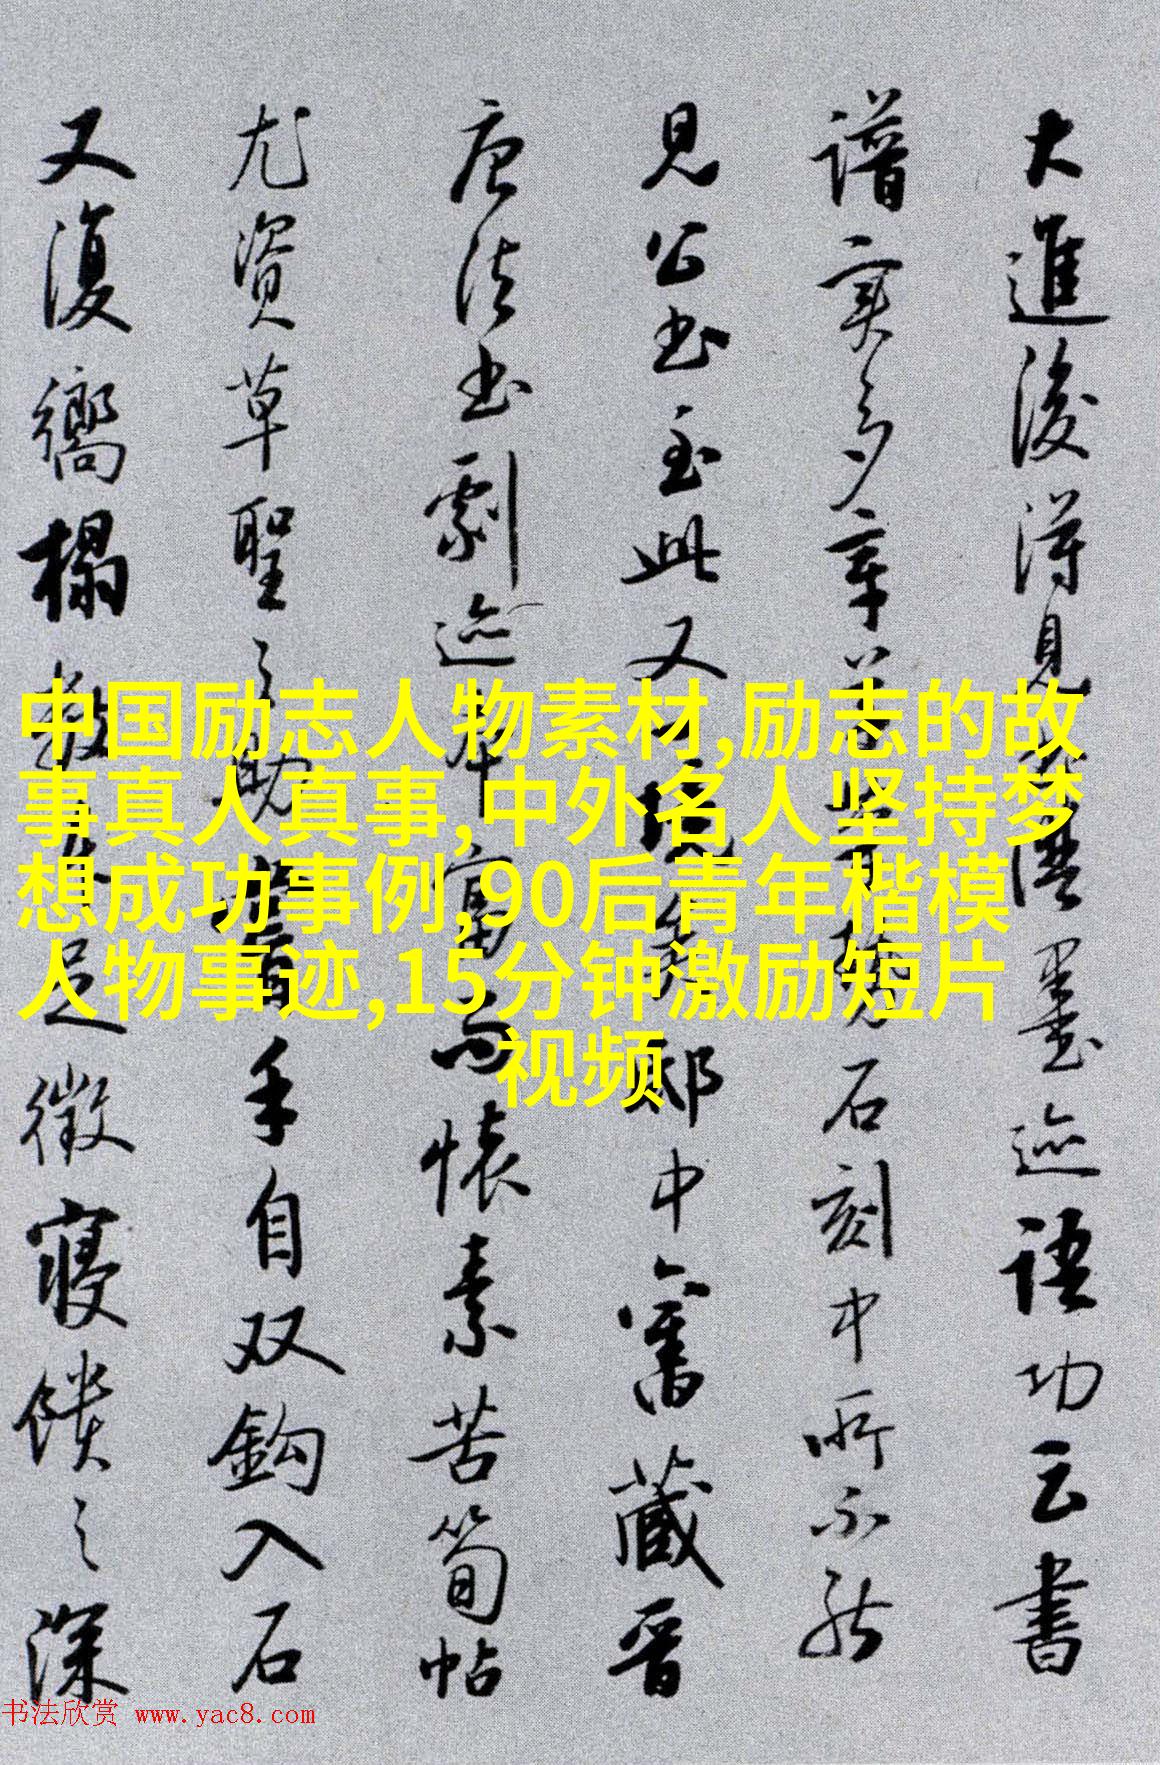 大進後得見墨迹語功云書
譜实多章草石刻中所不能
見公书至此又一境矣邸中舊藏晉
唐法书劇迹本富而懷素苦筍帖
尤資草聖之助嘗手自双鈎入石
又復嚮榻數本足徵寢饋之深
中国励志人物素材,励志的故
事真人真事,中外名人坚持梦
想成功事例,90后青年楷模
人物事迹,15分钟激励短片
视频
书法欣赏 www.yac8.com